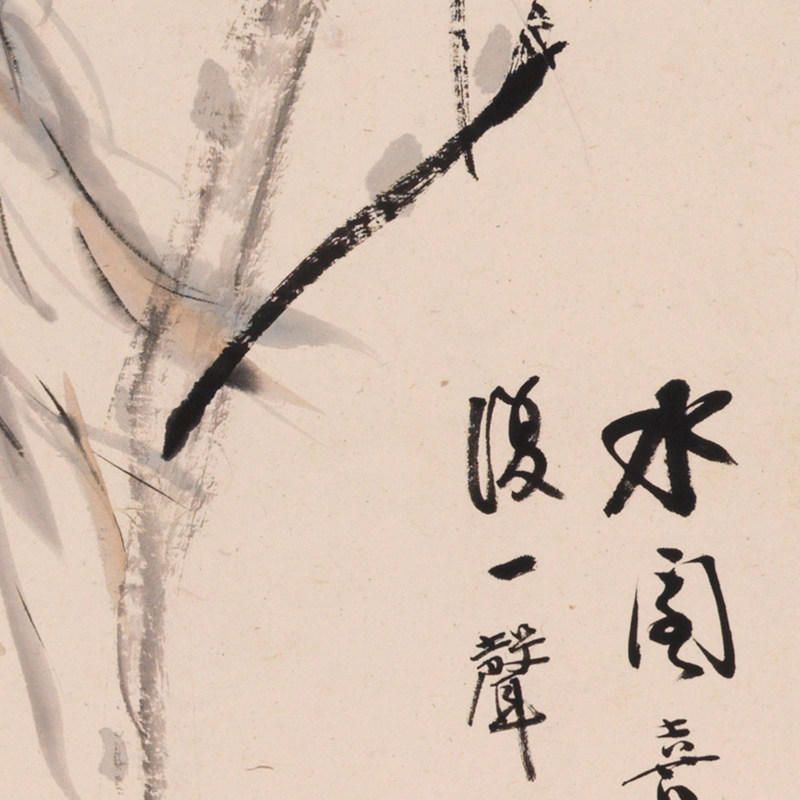 水閣
復一聲